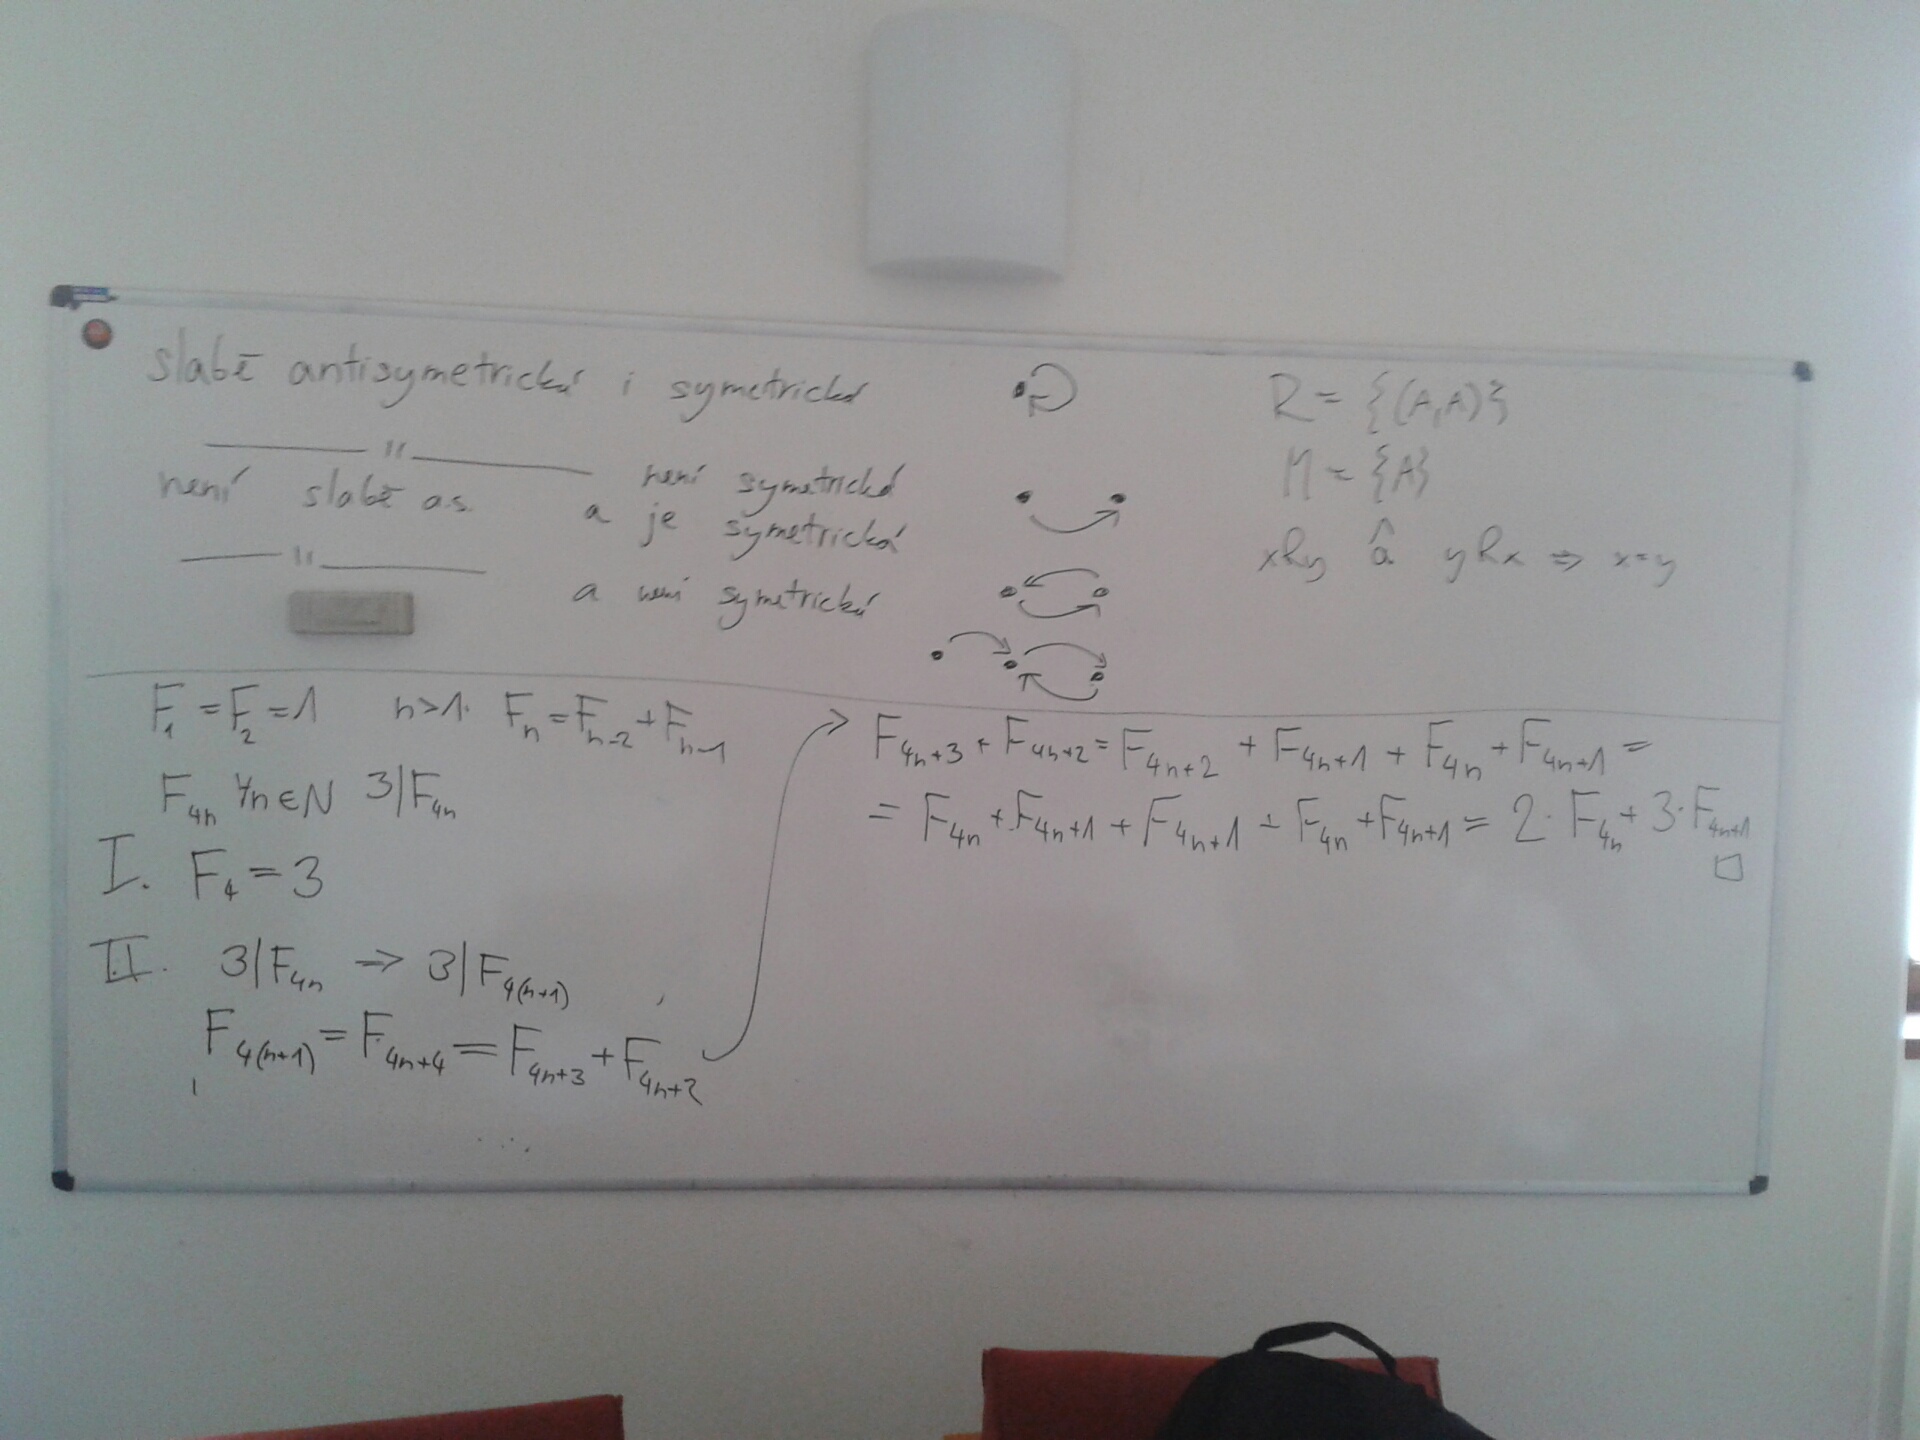 slabě antisymetrická i symetrická
—— " —— není symetrická
není slabě a.s. a je symetrická
—— " —— a není symetrická
R = {(A,A)}
M = {A}
xRy a yRx ⇒ x=y
F₁ = F₂ = 1 n>1. Fₙ = Fₙ₋₂ + Fₙ₋₁
F₄ₙ ∀n∈N 3|F₄ₙ
I. F₄ = 3
II. 3|F₄ₙ ⇒ 3|F₄₍ₙ₊₁₎
F₄₍ₙ₊₁₎ = F₄ₙ₊₄ = F₄ₙ₊₃ + F₄ₙ₊₂
F₄ₙ₊₃ + F₄ₙ₊₂ = F₄ₙ₊₂ + F₄ₙ₊₁ + F₄ₙ + F₄ₙ₊₁ =
= F₄ₙ + F₄ₙ₊₁ + F₄ₙ₊₁ + F₄ₙ + F₄ₙ₊₁ = 2·F₄ₙ + 3·F₄ₙ₊₁
□